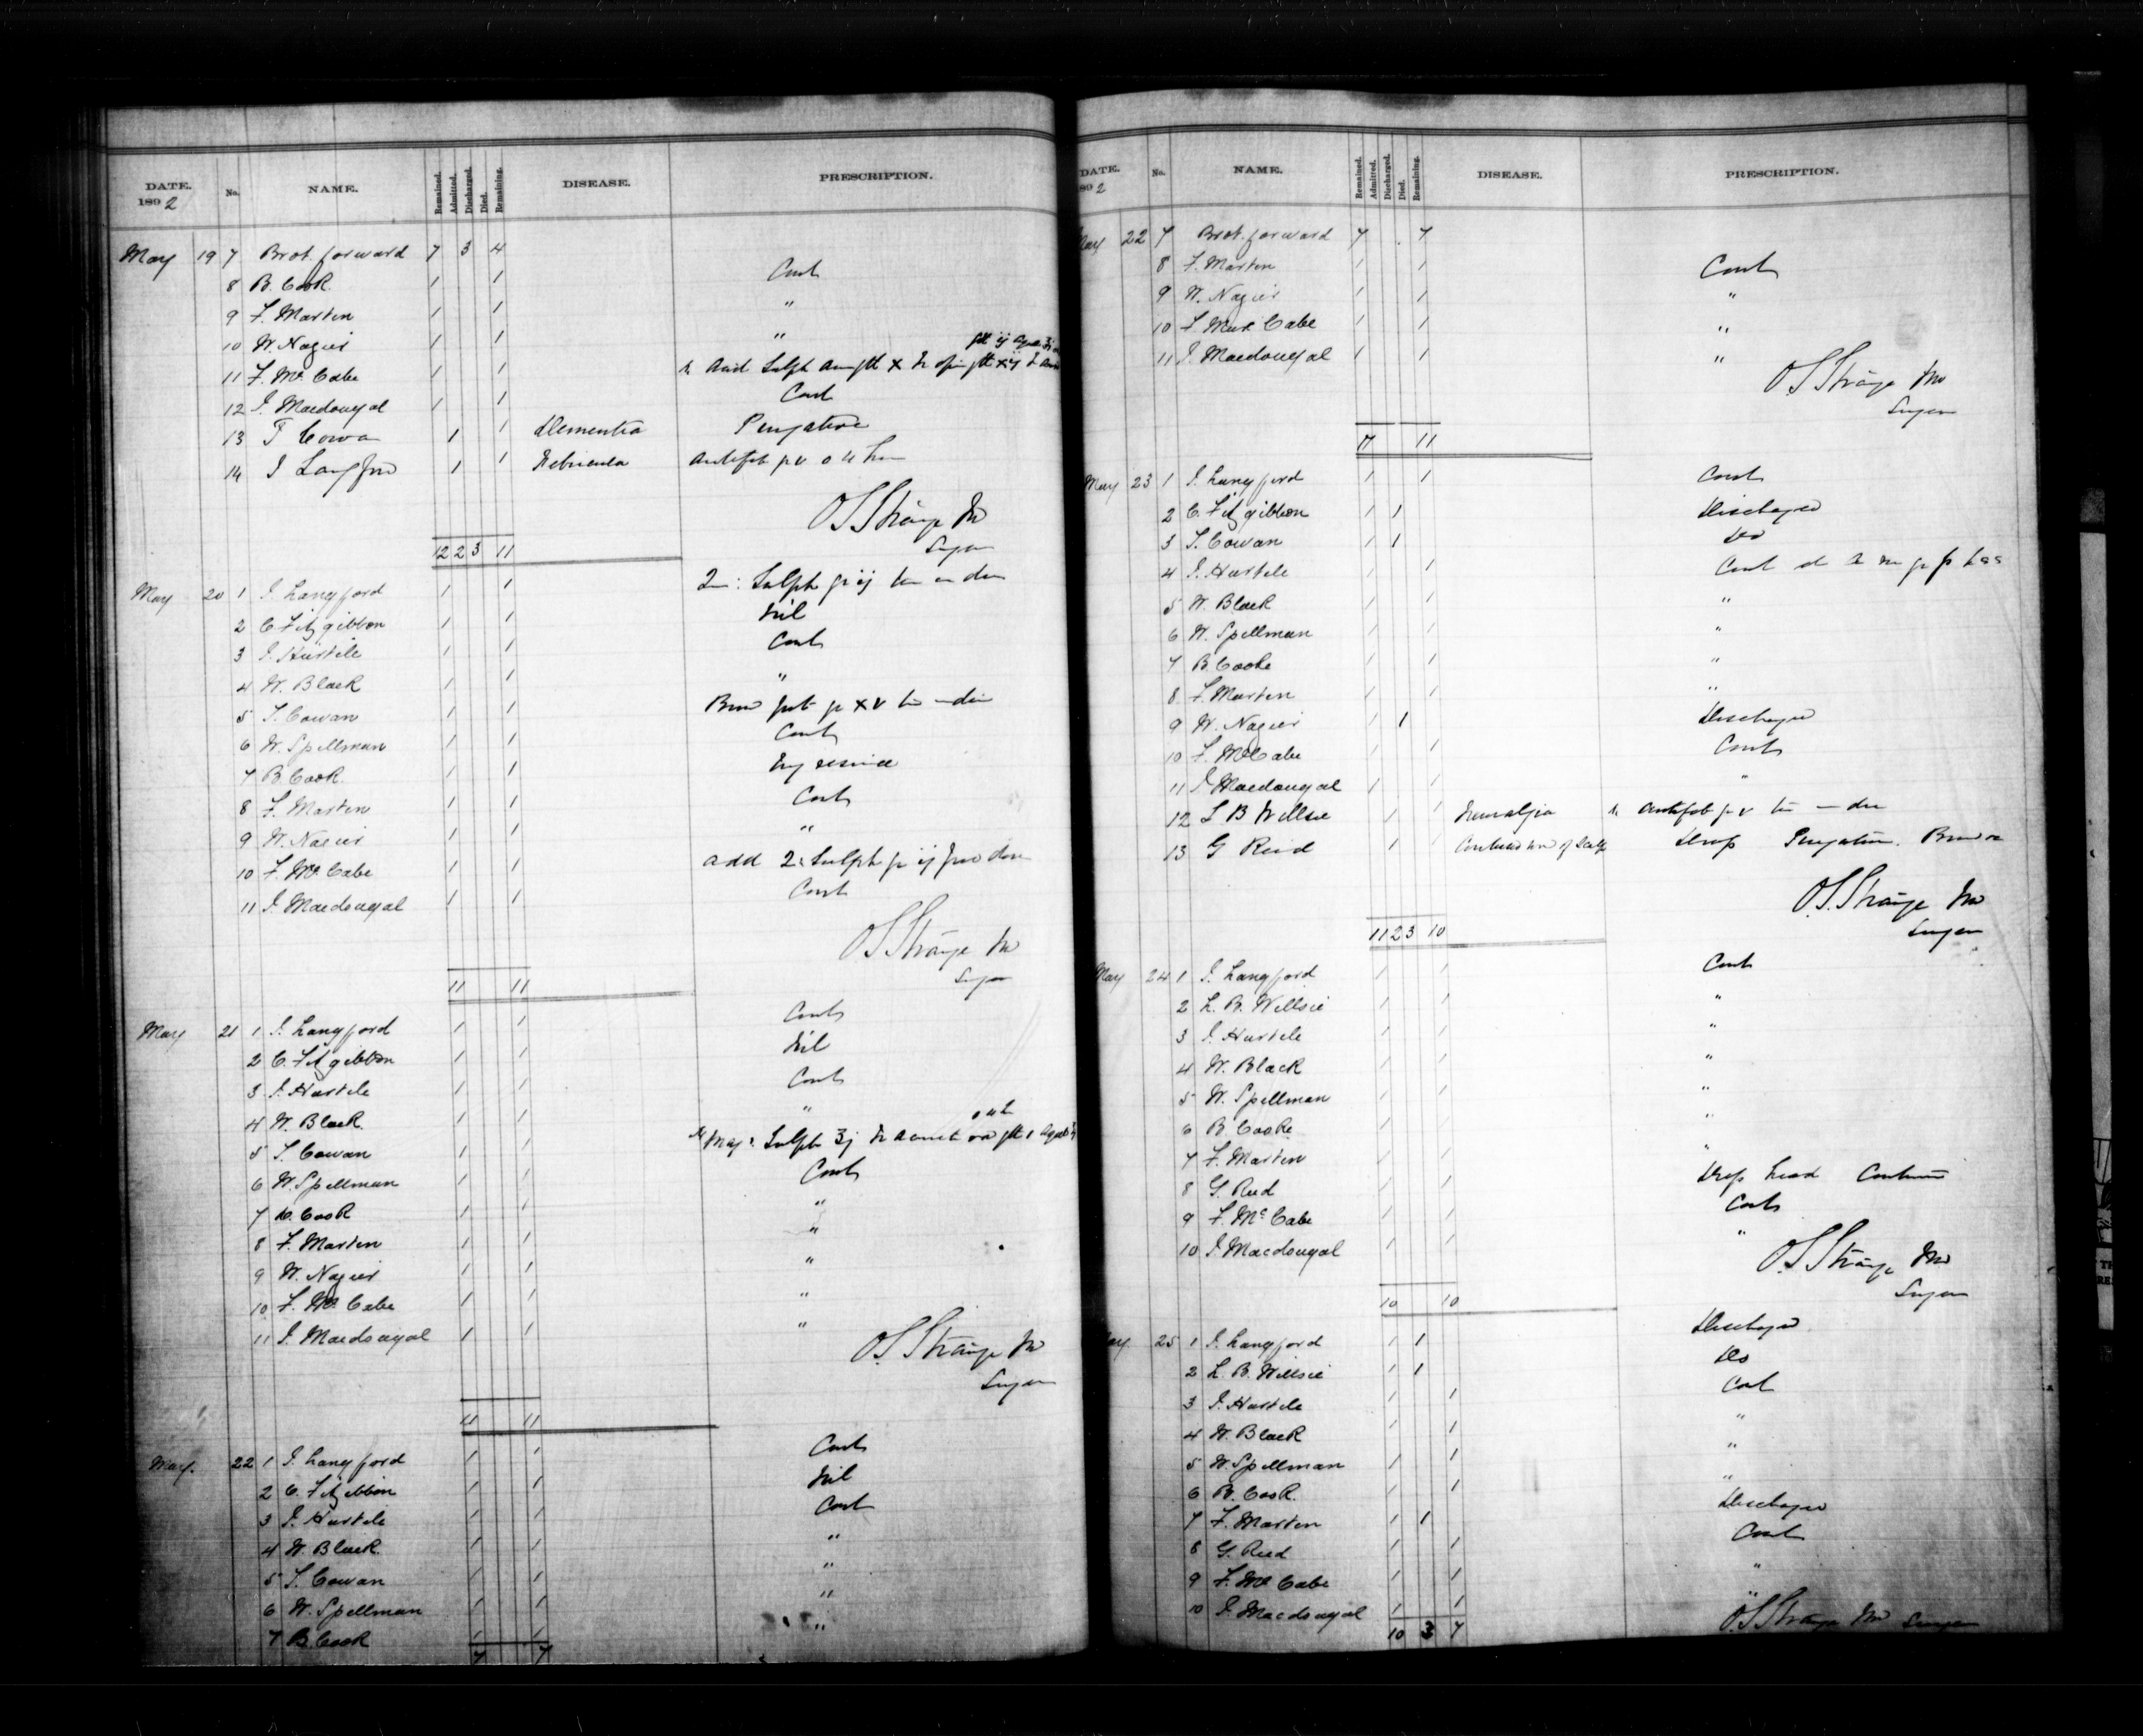 DATE. 1892 No. NAME. Remained. Admitted. Discharged. Died. Remaining. DISEASE. PRESCRIPTION.
May 19 7 Brot. forward 7 3 4
8 B. Cook 1 1 Cont
9 F. Marten 1 1 "
10 W. Nagier 1 1 "
11 F. Mc Cabe 1 1 Acid Sulph
12 J. Macdougal 1 1 Cont
13 T Cowan 1 1 Dementia Purgative
14 J Langford 1 1 Febricula
O.S. Strange MD
Surgeon
12 2 3 11
May 20 1 J. Langford 1 1 Sulph
2 C. Fitzgibbon 1 1 Nil
3 J. Hartele 1 1 Cont
4 W. Black 1 1 "
5 T. Cowan 1 1
6 W. Spellman 1 1 Cont
7 B. Cook. 1 1
8 F. Marten 1 1 Cont
9 W. Nagier 1 1 "
10 F. Mc Cabe 1 1 add Sulph
11 J. Macdougal 1 1 Cont
O.S. Strange MD
Surgeon
11 11
May 21 1 J. Langford 1 1 Cont
2 C. Fitzgibbon 1 1 Nil
3 J. Hartele 1 1 Cont
4 W. Black. 1 1 "
5 T. Cowan 1 1 Mag Sulph
6 W. Spellman 1 1 Cont
7 B. Cook 1 1 "
8 F. Marten 1 1 "
9 W. Nagier 1 1 "
10 F. Mc Cabe 1 1 "
11 J. Macdougal 1 1 "
O.S. Strange MD
Surgeon
11 11
May. 22 1 J. Langford 1 1 Cont
2 C. Fitzgibbon 1 1 Nil
3 J. Hartele 1 1 Cont
4 W. Black. 1 1 "
5 T. Cowan 1 1 "
6 W. Spellman 1 1 "
7 B. Cook 1 1 "
7 7
DATE. 1892 No. NAME. Remained. Admitted. Discharged. Died. Remaining. DISEASE. PRESCRIPTION.
May 22 7 Brot. forward 7 7
8 F. Marten 1 1 Cont
9 W. Nagier 1 1 "
10 F. Mc Cabe 1 1 "
11 J. Macdougal 1 1 "
O.S. Strange MD
Surgeon
11 11
May 23 1 J. Langford 1 1 Cont
2 C. Fitzgibbon 1 1 Discharged
3 T. Cowan 1 1 Do
4 J. Hartele 1 1 Cont
5 W. Black 1 1 "
6 W. Spellman 1 1 "
7 B. Cooke 1 1 "
8 F. Marten 1 1 "
9 W. Nagier 1 1 Discharged
10 F. McCabe 1 1 Cont
11 J. Macdougal 1 1 "
12 L B Willsie 1 1 Neuralgia
13 G Reid 1 1 of Scalp Purgative
O.S. Strange MD
Surgeon
11 2 3 10
May 24 1 J. Langford 1 1 Cont
2 L. B. Willsie 1 1 "
3 J. Hartele 1 1 "
4 W. Black 1 1 "
5 W. Spellman 1 1 "
6 B. Cooke 1 1 "
7 F. Marten 1 1 "
8 G. Reid 1 1 head
9 F. Mc Cabe 1 1 Cont
10 J. Macdougal 1 1 "
O.S. Strange MD
Surgeon
10 10
May. 25 1 J. Langford 1 1 Discharged
2 L. B. Willsie 1 1 Do
3 J. Hartele 1 1 Cont
4 W. Black 1 1 "
5 W. Spellman 1 1 "
6 B. Cook. 1 1 "
7 F. Marten 1 1 Discharged
8 G. Reid 1 1 Cont
9 F. Mc Cabe 1 1 "
10 J. Macdougal 1 1 "
10 3 7 O.S. Strange MD Surgeon